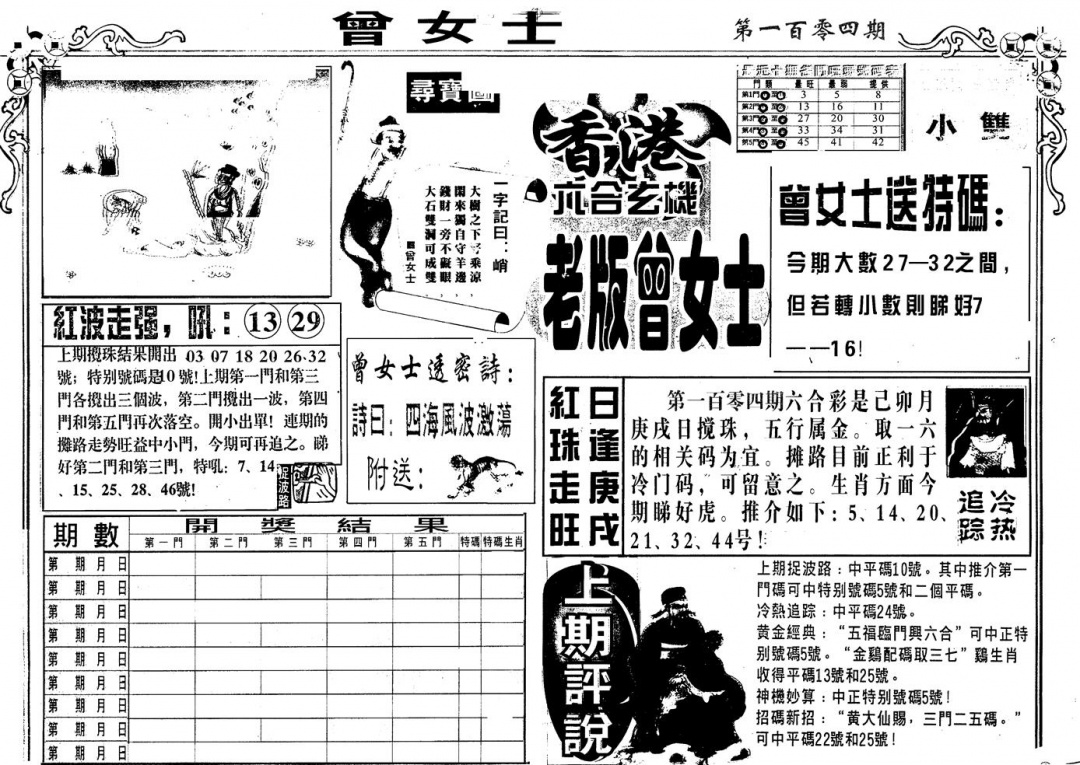 曾女士
第一百零四期
尋寶圖
一字記曰：峭
大樹之下可乘涼，
閑來獨自守羊邊，
錢財一旁不礙眼，
大石雙洞可成雙，
曾女士
香港
六合玄機
老版曾女士
門類 最旺 最弱 提供
第1門 至 3 5 8
第2門 至 13 16 11
第3門 至 27 20 30
第4門 至 33 34 31
第5門 至 45 41 42
小雙
曾女士送特碼：
今期大數27—32之間，
但若轉小數則睇好7
——16！
紅波走强，吼：13 29
上期攪珠結果開出 03 07 18 20 26 32
號；特别號碼是10號！上期第一門和第三
門各攪出三個波，第二門攪出一波，第四
門和第五門再次落空。開小出單！連期的
攤路走勢旺益中小門，今期可再追之。睇
好第二門和第三門，特吼：7、14
、15、25、28、46號！
捉波路
曾女士透密詩：
詩曰：四海風波激蕩
附送：
日逢庚戌
紅珠走旺
第一百零四期六合彩是己卯月
庚戌日搅珠，五行属金。取一六
的相关码为宜。摊路目前正利于
冷门码，可留意之。生肖方面今
期睇好虎。推介如下：5、14、20、
21、32、44号！
冷热
追踪
期數 開獎結果
第一門 第二門 第三門 第四門 第五門 特碼 特碼生肖
第 期 月 日
第 期 月 日
第 期 月 日
第 期 月 日
第 期 月 日
第 期 月 日
第 期 月 日
第 期 月 日
第 期 月 日
上期評說
上期捉波路：中平碼10號。其中推介第一
門碼可中特别號碼5號和二個平碼。
冷熱追踪：中平碼24號。
黄金經典：“五福臨門興六合”可中正特
别號碼5號。“金鷄配碼取三七”鷄生肖
收得平碼13號和25號。
神機妙算：中正特别號碼5號！
招碼新招：“黄大仙賜，三門二五碼。”
可中平碼22號和25號！